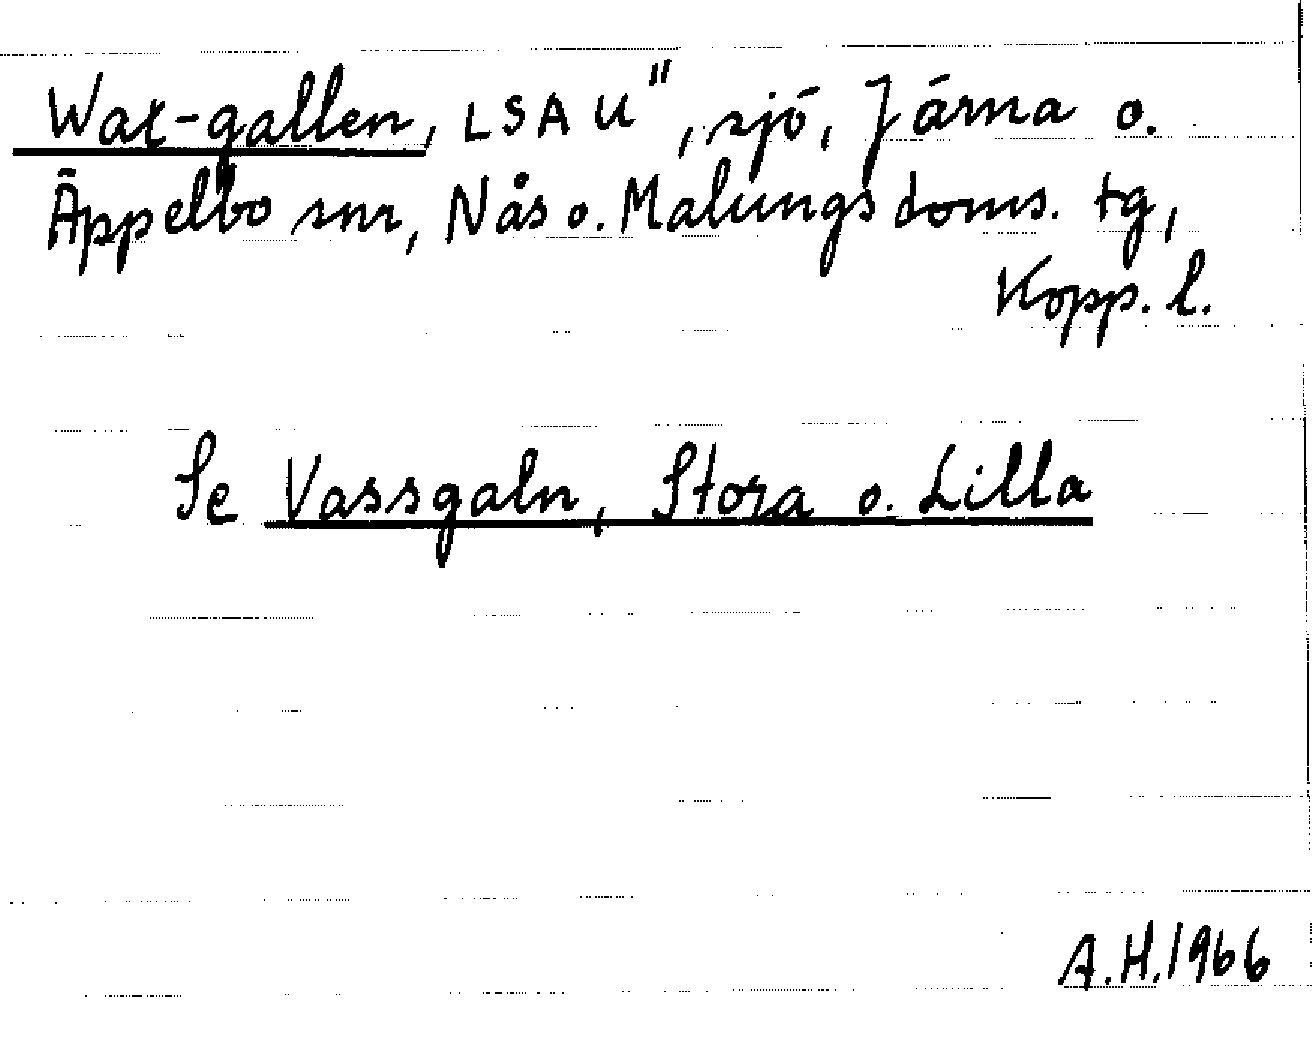 Wax-gallen, LSA U", sjö, Järna o.
Äppelbo snr, Nås o. Malungs doms. tg,
Kopp. l.
Se Vassgaln, Stora o. Lilla
A.H.1966